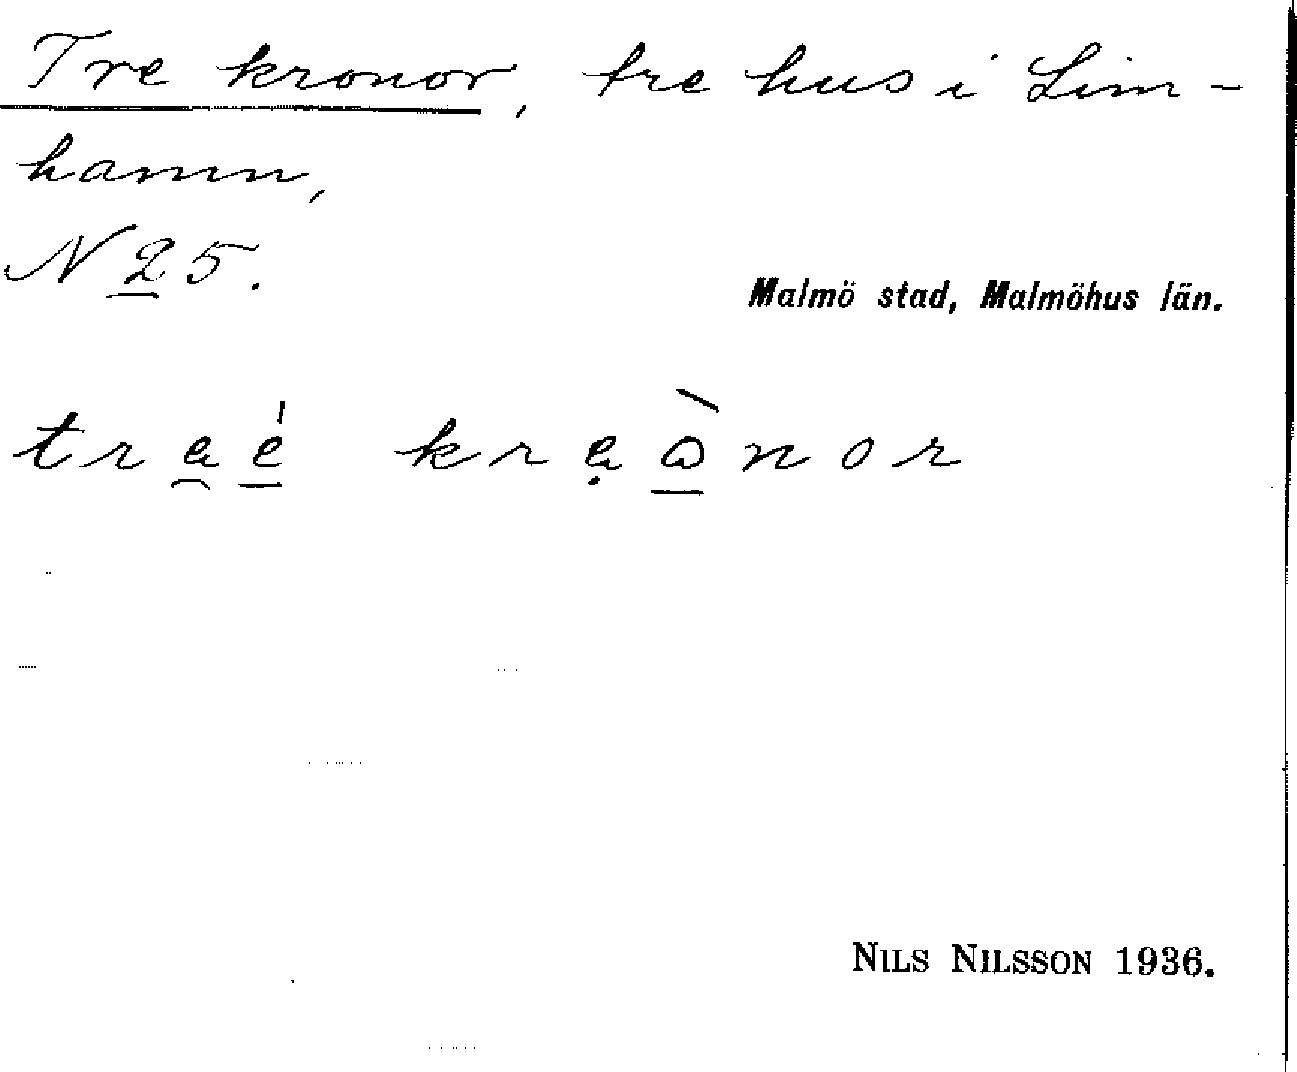 Tre kronor, tre hus i Lim-
hamn,
N 25.
Malmö stad, Malmöhus län.
kronor
NILS NILSSON 1936.